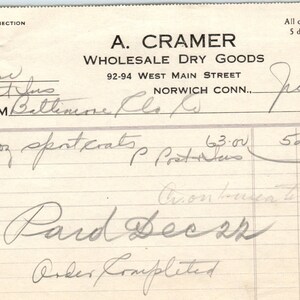 NECTION
A. CRAMER
All c
WHOLESALE DRY GOODS
5 d
92-94 WEST MAIN STREET
NORWICH CONN.,
M Baltimore Clo Co
oz sportcoats 63.00
P Post & Ins
Paid Dec 22
Order Completed